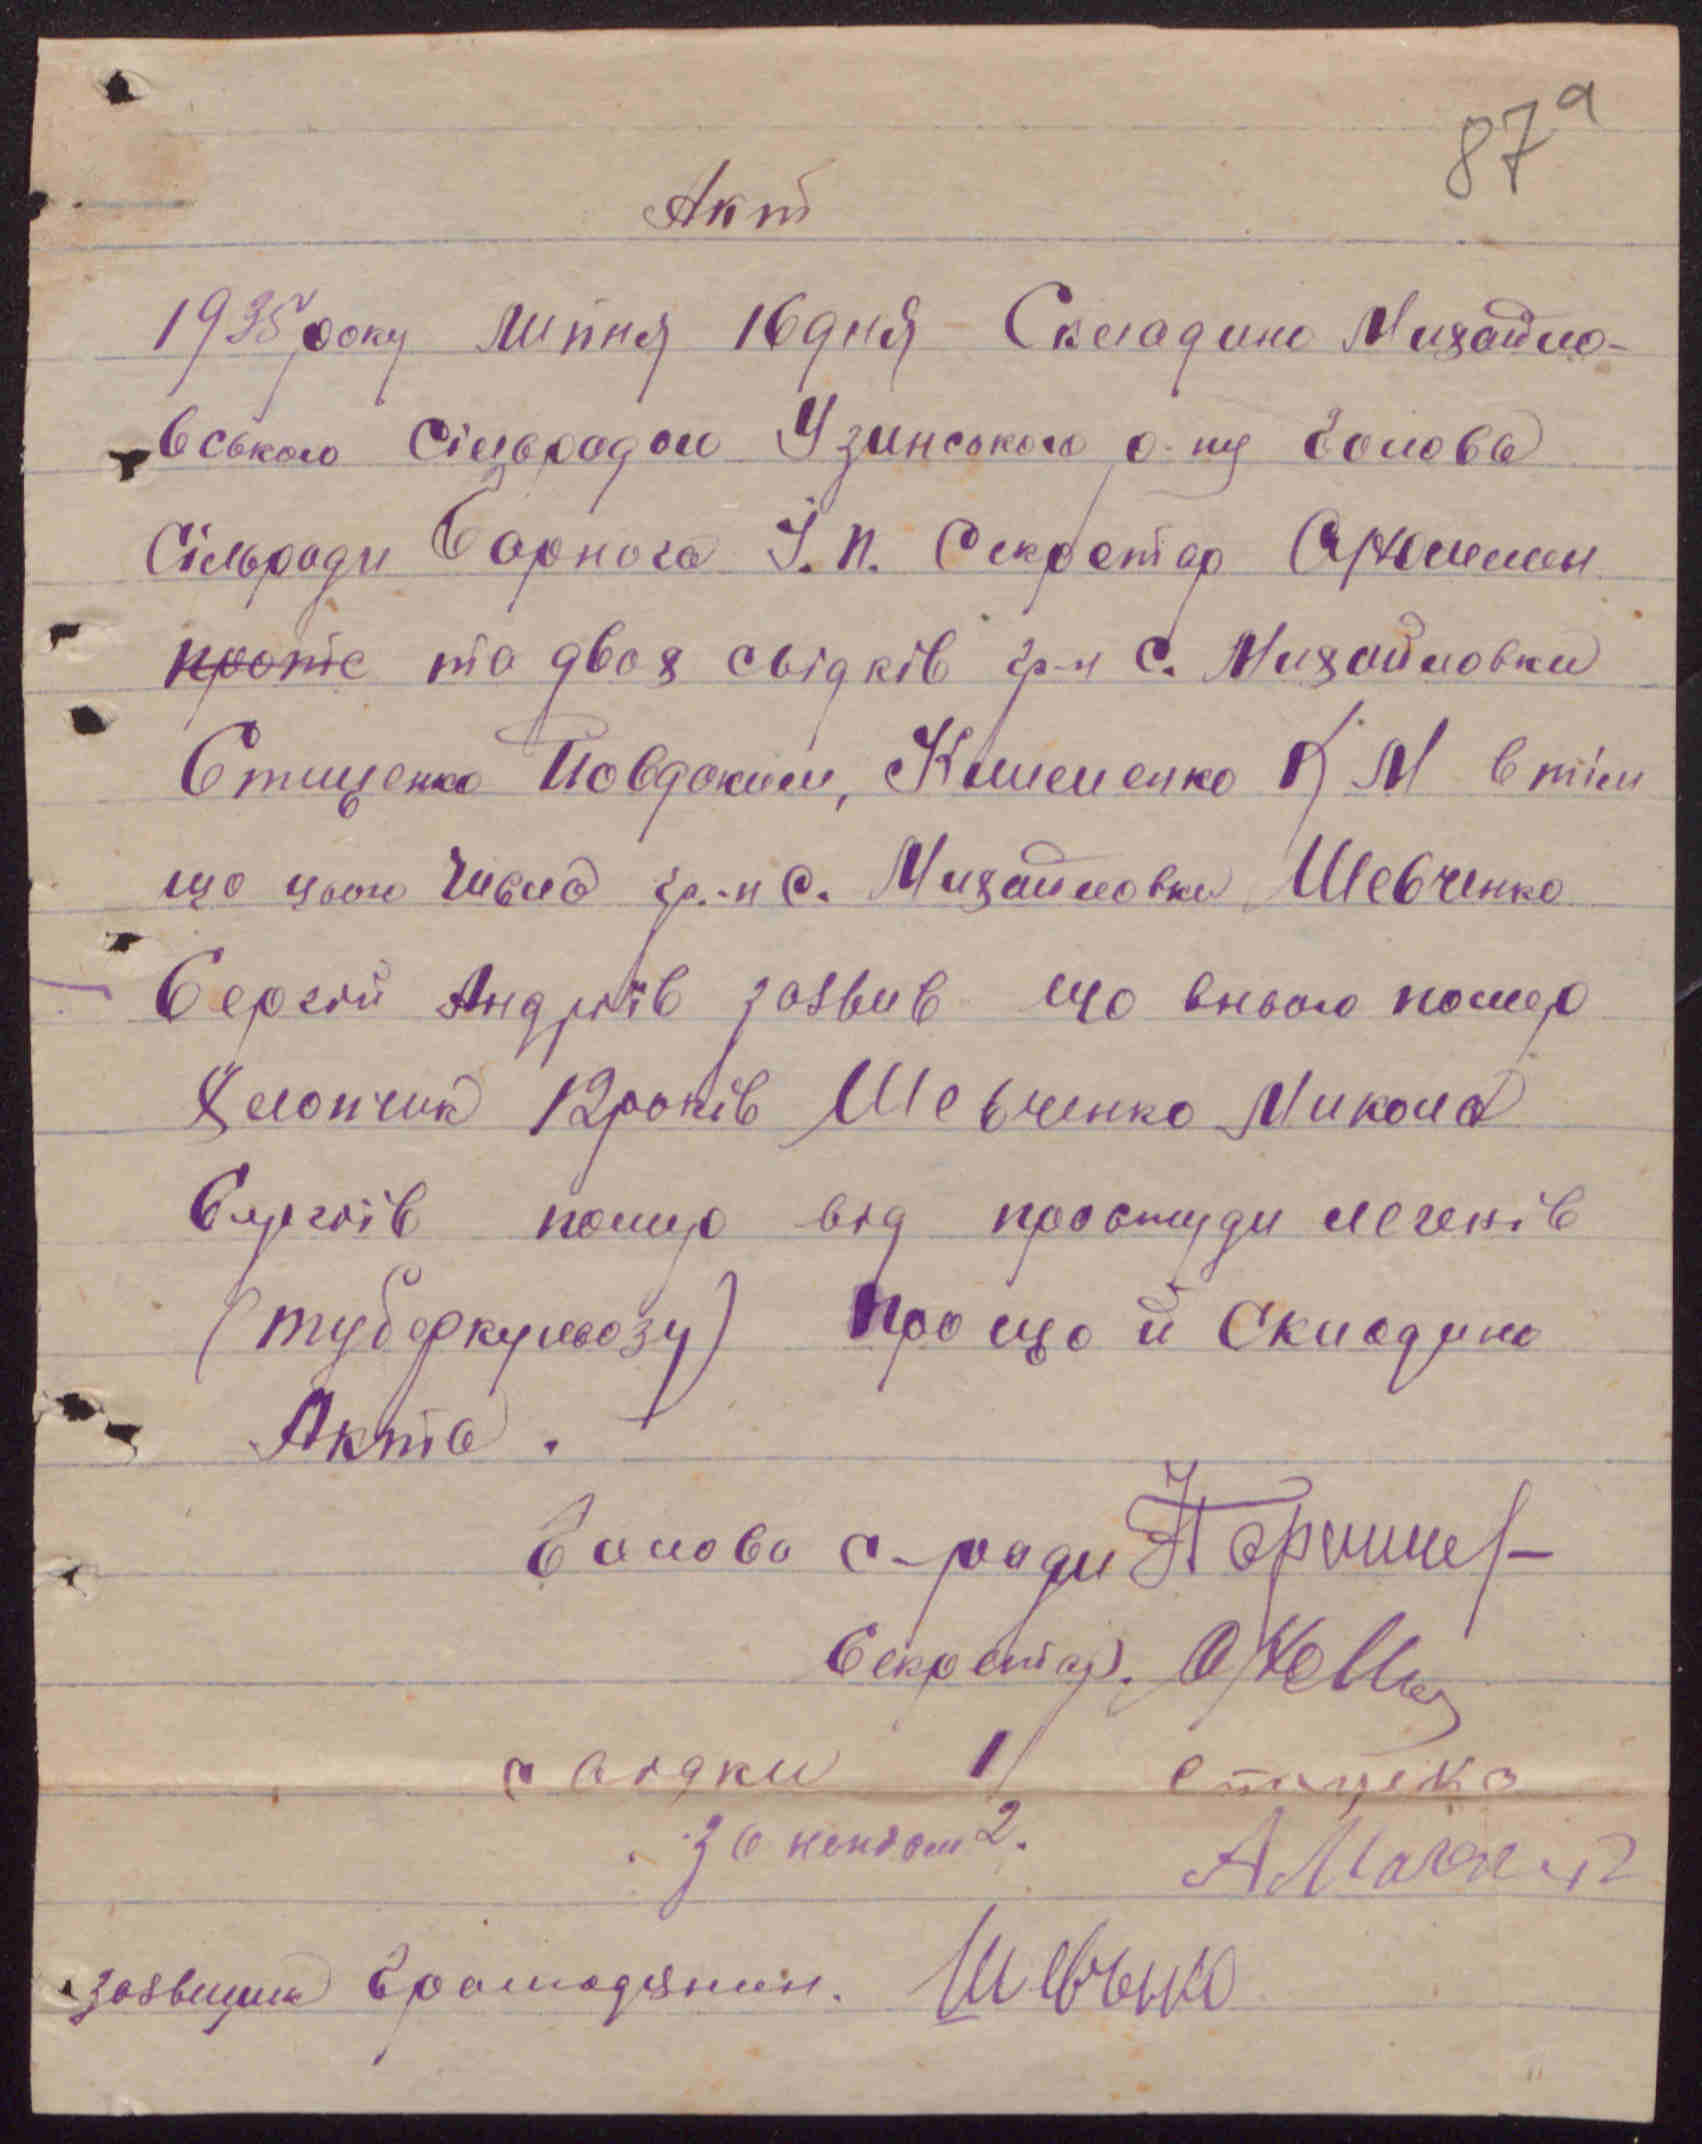 87а
Акт
1935 року липня 16 дня Складино Михайло-
вського Сільрадою Узинського р-ну Голова
Сільради Барнога І. П. Секретар
протіс та двох свідків гр-н с. Михайловки
Стищенко Йовдоким, Клименко К М в тім
що цього числа гр.-н с. Михайловки Шевченко
Сергій Андріїв заявив що внього помер
Хлопчик 12 років Шевченко Микола
Сергіїв помер від простуди легенів
(туберкульозу) про що й Складино
Акта.
Голова с-ради
Секретар.
свідки 1
2.
заявищик Громадянин. Шевченко